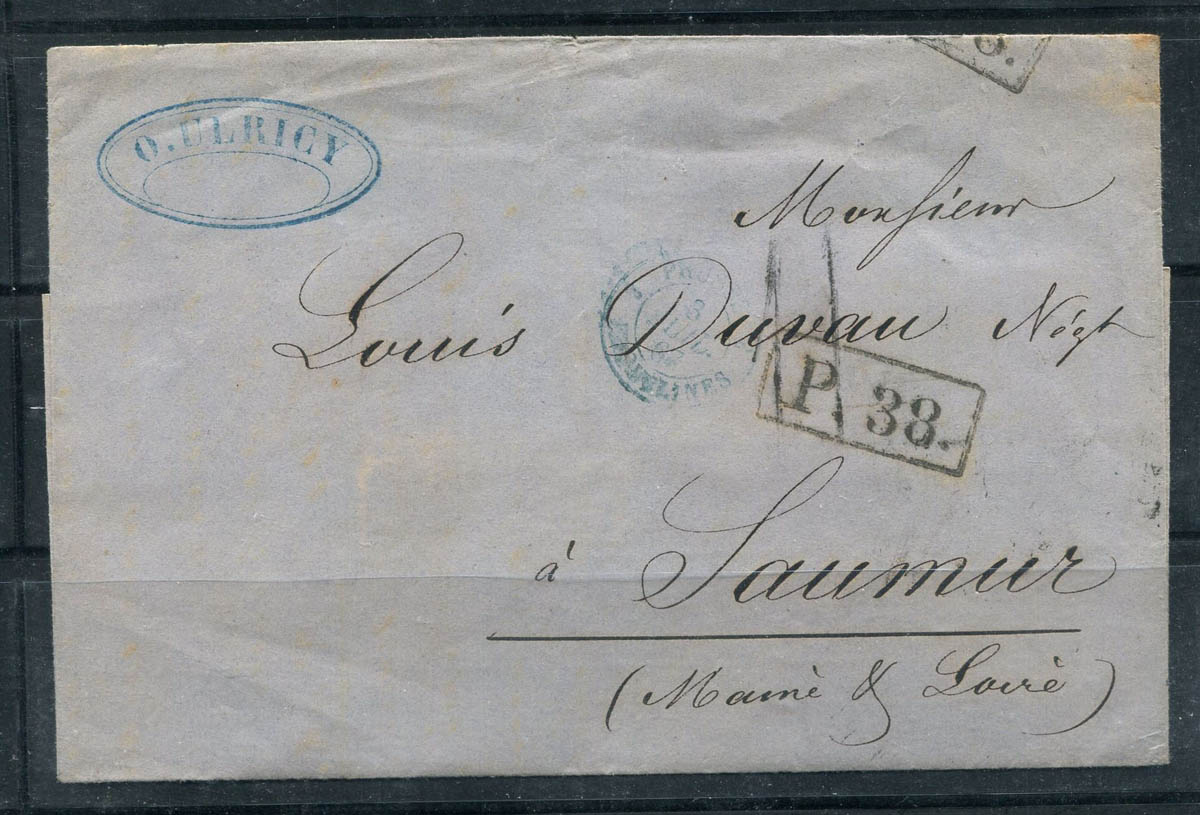 O. ULRICY
Monsieur
Louis Duvau Négt
P. 38.
à Saumur
(Maine & Loire)